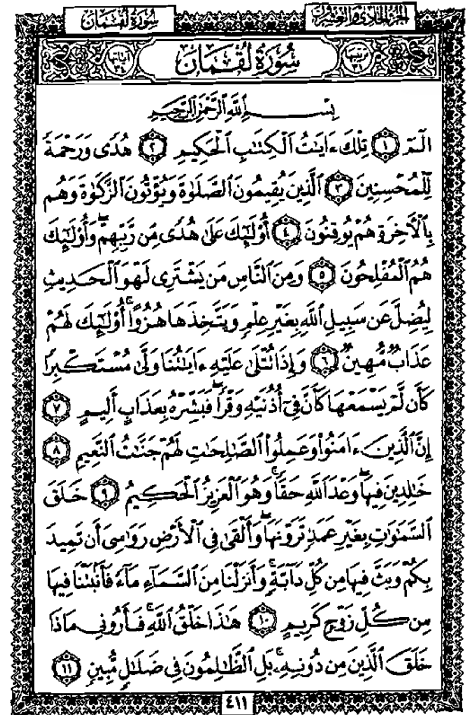 الجزء الحادي والعشرون
سورة لقمان
ترتيبها ٣١
سُورَةُ لُقْمَان
آياتها ٣٤
بِسْمِ ٱللَّهِ ٱلرَّحْمَٰنِ ٱلرَّحِيمِ
الٓمٓ ١ تِلْكَ ءَايَٰتُ ٱلْكِتَٰبِ ٱلْحَكِيمِ ٢ هُدًى وَرَحْمَةً
لِّلْمُحْسِنِينَ ٣ ٱلَّذِينَ يُقِيمُونَ ٱلصَّلَوٰةَ وَيُؤْتُونَ ٱلزَّكَوٰةَ وَهُم
بِٱلْأَخِرَةِ هُمْ يُوقِنُونَ ٤ أُوْلَٰٓئِكَ عَلَىٰ هُدًى مِّن رَّبِّهِمْ ۖ وَأُوْلَٰٓئِكَ
هُمُ ٱلْمُفْلِحُونَ ٥ وَمِنَ ٱلنَّاسِ مَن يَشْتَرِى لَهْوَ ٱلْحَدِيثِ
لِيُضِلَّ عَن سَبِيلِ ٱللَّهِ بِغَيْرِ عِلْمٍ وَيَتَّخِذَهَا هُزُوًا ۚ أُوْلَٰٓئِكَ لَهُمْ
عَذَابٌ مُّهِينٌ ٦ وَإِذَا تُتْلَىٰ عَلَيْهِ ءَايَٰتُنَا وَلَّىٰ مُسْتَكْبِرًا
كَأَن لَّمْ يَسْمَعْهَا كَأَنَّ فِىٓ أُذُنَيْهِ وَقْرًا ۖ فَبَشِّرْهُ بِعَذَابٍ أَلِيمٍ ٧
إِنَّ ٱلَّذِينَ ءَامَنُوا۟ وَعَمِلُوا۟ ٱلصَّٰلِحَٰتِ لَهُمْ جَنَّٰتُ ٱلنَّعِيمِ ٨
خَٰلِدِينَ فِيهَا ۖ وَعْدَ ٱللَّهِ حَقًّا ۚ وَهُوَ ٱلْعَزِيزُ ٱلْحَكِيمُ ٩ خَلَقَ
ٱلسَّمَٰوَٰتِ بِغَيْرِ عَمَدٍ تَرَوْنَهَا ۖ وَأَلْقَىٰ فِى ٱلْأَرْضِ رَوَٰسِىَ أَن تَمِيدَ
بِكُمْ وَبَثَّ فِيهَا مِن كُلِّ دَآبَّةٍ ۚ وَأَنزَلْنَا مِنَ ٱلسَّمَآءِ مَآءً فَأَنۢبَتْنَا فِيهَا
مِن كُلِّ زَوْجٍ كَرِيمٍ ١٠ هَٰذَا خَلْقُ ٱللَّهِ فَأَرُونِى مَاذَا
خَلَقَ ٱلَّذِينَ مِن دُونِهِۦ ۚ بَلِ ٱلظَّٰلِمُونَ فِى ضَلَٰلٍ مُّبِينٍ ١١
٤١١